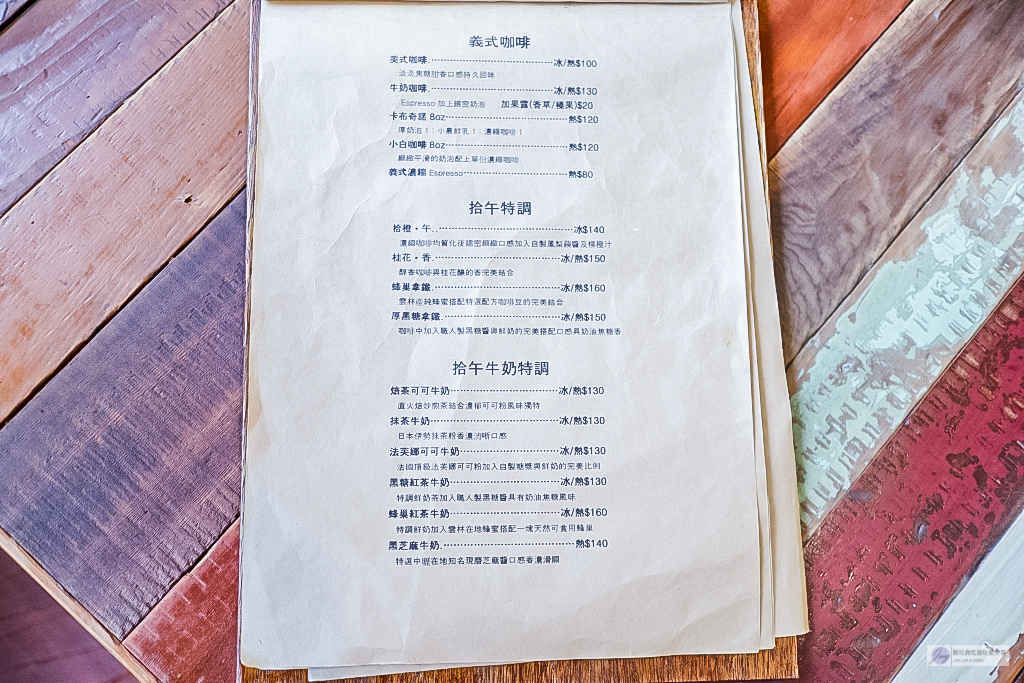 義式咖啡
美式咖啡.································冰/熱$100
淡淡焦糖甜香口感持久回味
牛奶咖啡.································冰/熱$130
Espresso 加上綿密奶泡 加果露(香草/榛果)$20
卡布奇諾 8oz································熱$120
厚奶泡 1：小農鮮乳 1：濃縮咖啡 1
小白咖啡 8oz································熱$120
細緻平滑的奶泡配上單份濃縮咖啡
義式濃縮 Espresso··························熱$80
拾午特調
拾橙・午..································冰$140
濃縮咖啡均質化後綿密細緻口感加入自製鳳梨蘋醬及柳橙汁
桂花・香.································冰/熱$150
醇香咖啡與桂花釀的香完美結合
蜂巢拿鐵.································冰/熱$160
雲林產純蜂蜜搭配特選配方咖啡豆的完美結合
厚黑糖拿鐵.······························冰/熱$150
咖啡中加入職人製黑糖醬與鮮奶的完美搭配口感具奶油焦糖香
拾午牛奶特調
焙茶可可牛奶····························冰/熱$130
直火焙炒煎茶結合濃郁可可粉風味獨特
抹茶牛奶·································冰/熱$130
日本伊勢抹茶粉香濃清晰口感
法芙娜可可牛奶··························冰/熱$130
法國頂級法芙娜可可粉加入自製糖漿與鮮奶的完美比例
黑糖紅茶牛奶····························冰/熱$130
特調鮮奶茶加入職人製黑糖醬具有奶油焦糖風味
蜂巢紅茶牛奶····························冰/熱$160
特調鮮奶加入雲林在地蜂蜜搭配一塊天然可食用蜂巢
黑芝麻牛奶.·································熱$140
特選中壢在地知名現磨芝麻醬口感香濃滑順